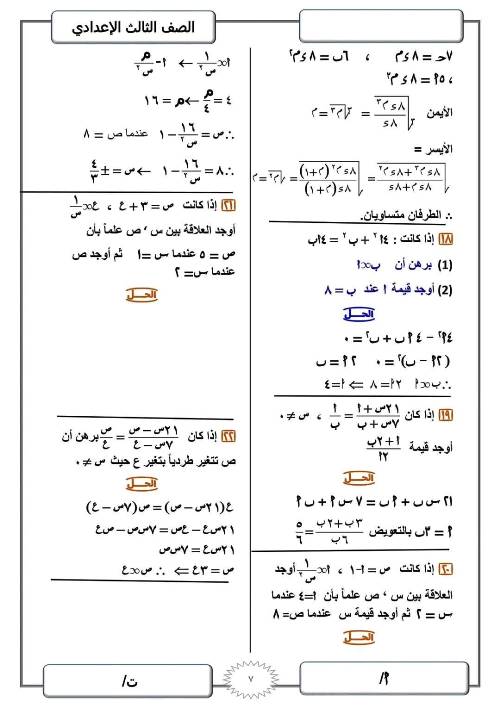 الصف الثالث الإعدادي
٧ح = ٨ ء م ، ٦ب = ٨ ء م٢
، ٥أ = ٨ ء م٣
الأيمن ٣√(٨ ء م٣ / ٨ ء) = ٣√م٣ = م
الأيسر =
√((٨ ء م٣ + ٨ ء م٢) / (٨ ء م + ٨ ء)) = √(٨ ء م٢ (م+١) / ٨ ء (م+١)) = √م٢ = م
∴ الطرفان متساويان.
١٨ إذا كانت : ٤أ٢ + ب٢ = ٤أب
(1) برهن أن ب∝أ
(2) أوجد قيمة أ عند ب = ٨
الحــل
٤أ٢ − ٤أب + ب٢ = ٠
(٢أ − ب)٢ = ٠ ٢أ = ب
∴ب∝أ ٢أ = ٨ ⇐ أ=٤
١٩ إذا كان (٢١س + أ) / (٧س + ب) = أ / ب ، س ≠ ٠
أوجد قيمة (أ + ٢ب) / ٢أ
الحــل
٢١س ب + أب = ٧س أ + ب أ
أ = ٣ب بالتعويض (٣ب + ٢ب) / ٦ب = ٥/٦
٢٠ إذا كانت ص = أ−١ ، أ∝١/س٢ أوجد
العلاقة بين س ، ص علماً بأن أ=٤ عندما
س = ٢ ثم أوجد قيمة س عندما ص= ٨
الحــل
أ∝١/س٢ ← أ = م/س٢
٤ = م/٤ ← م = ١٦
∴ص = ١٦/س٢ − ١ عندما ص = ٨
∴٨ = ١٦/س٢ − ١ ← س = ± ٤/٣
٢١ إذا كانت ص = ٣ + ع ، ع∝١/س
أوجد العلاقة بين س ، ص علماً بأن
ص = ٥ عندما س =١ ثم أوجد ص
عندما س= ٢
الحــل
٢٢ إذا كان (٢١س − ص) / (٧س − ع) = ص / ع برهن أن
ص تتغير طردياً بتغير ع حيث س ≠ ٠
الحــل
ع(٢١س − ص) = ص(٧س − ع)
٢١س ع − ع ص = ٧س ص − ص ع
٢١س ع = ٧س ص
ص = ٣ع ⇐ ∴ ص∝ع
أ/
٧
ت/